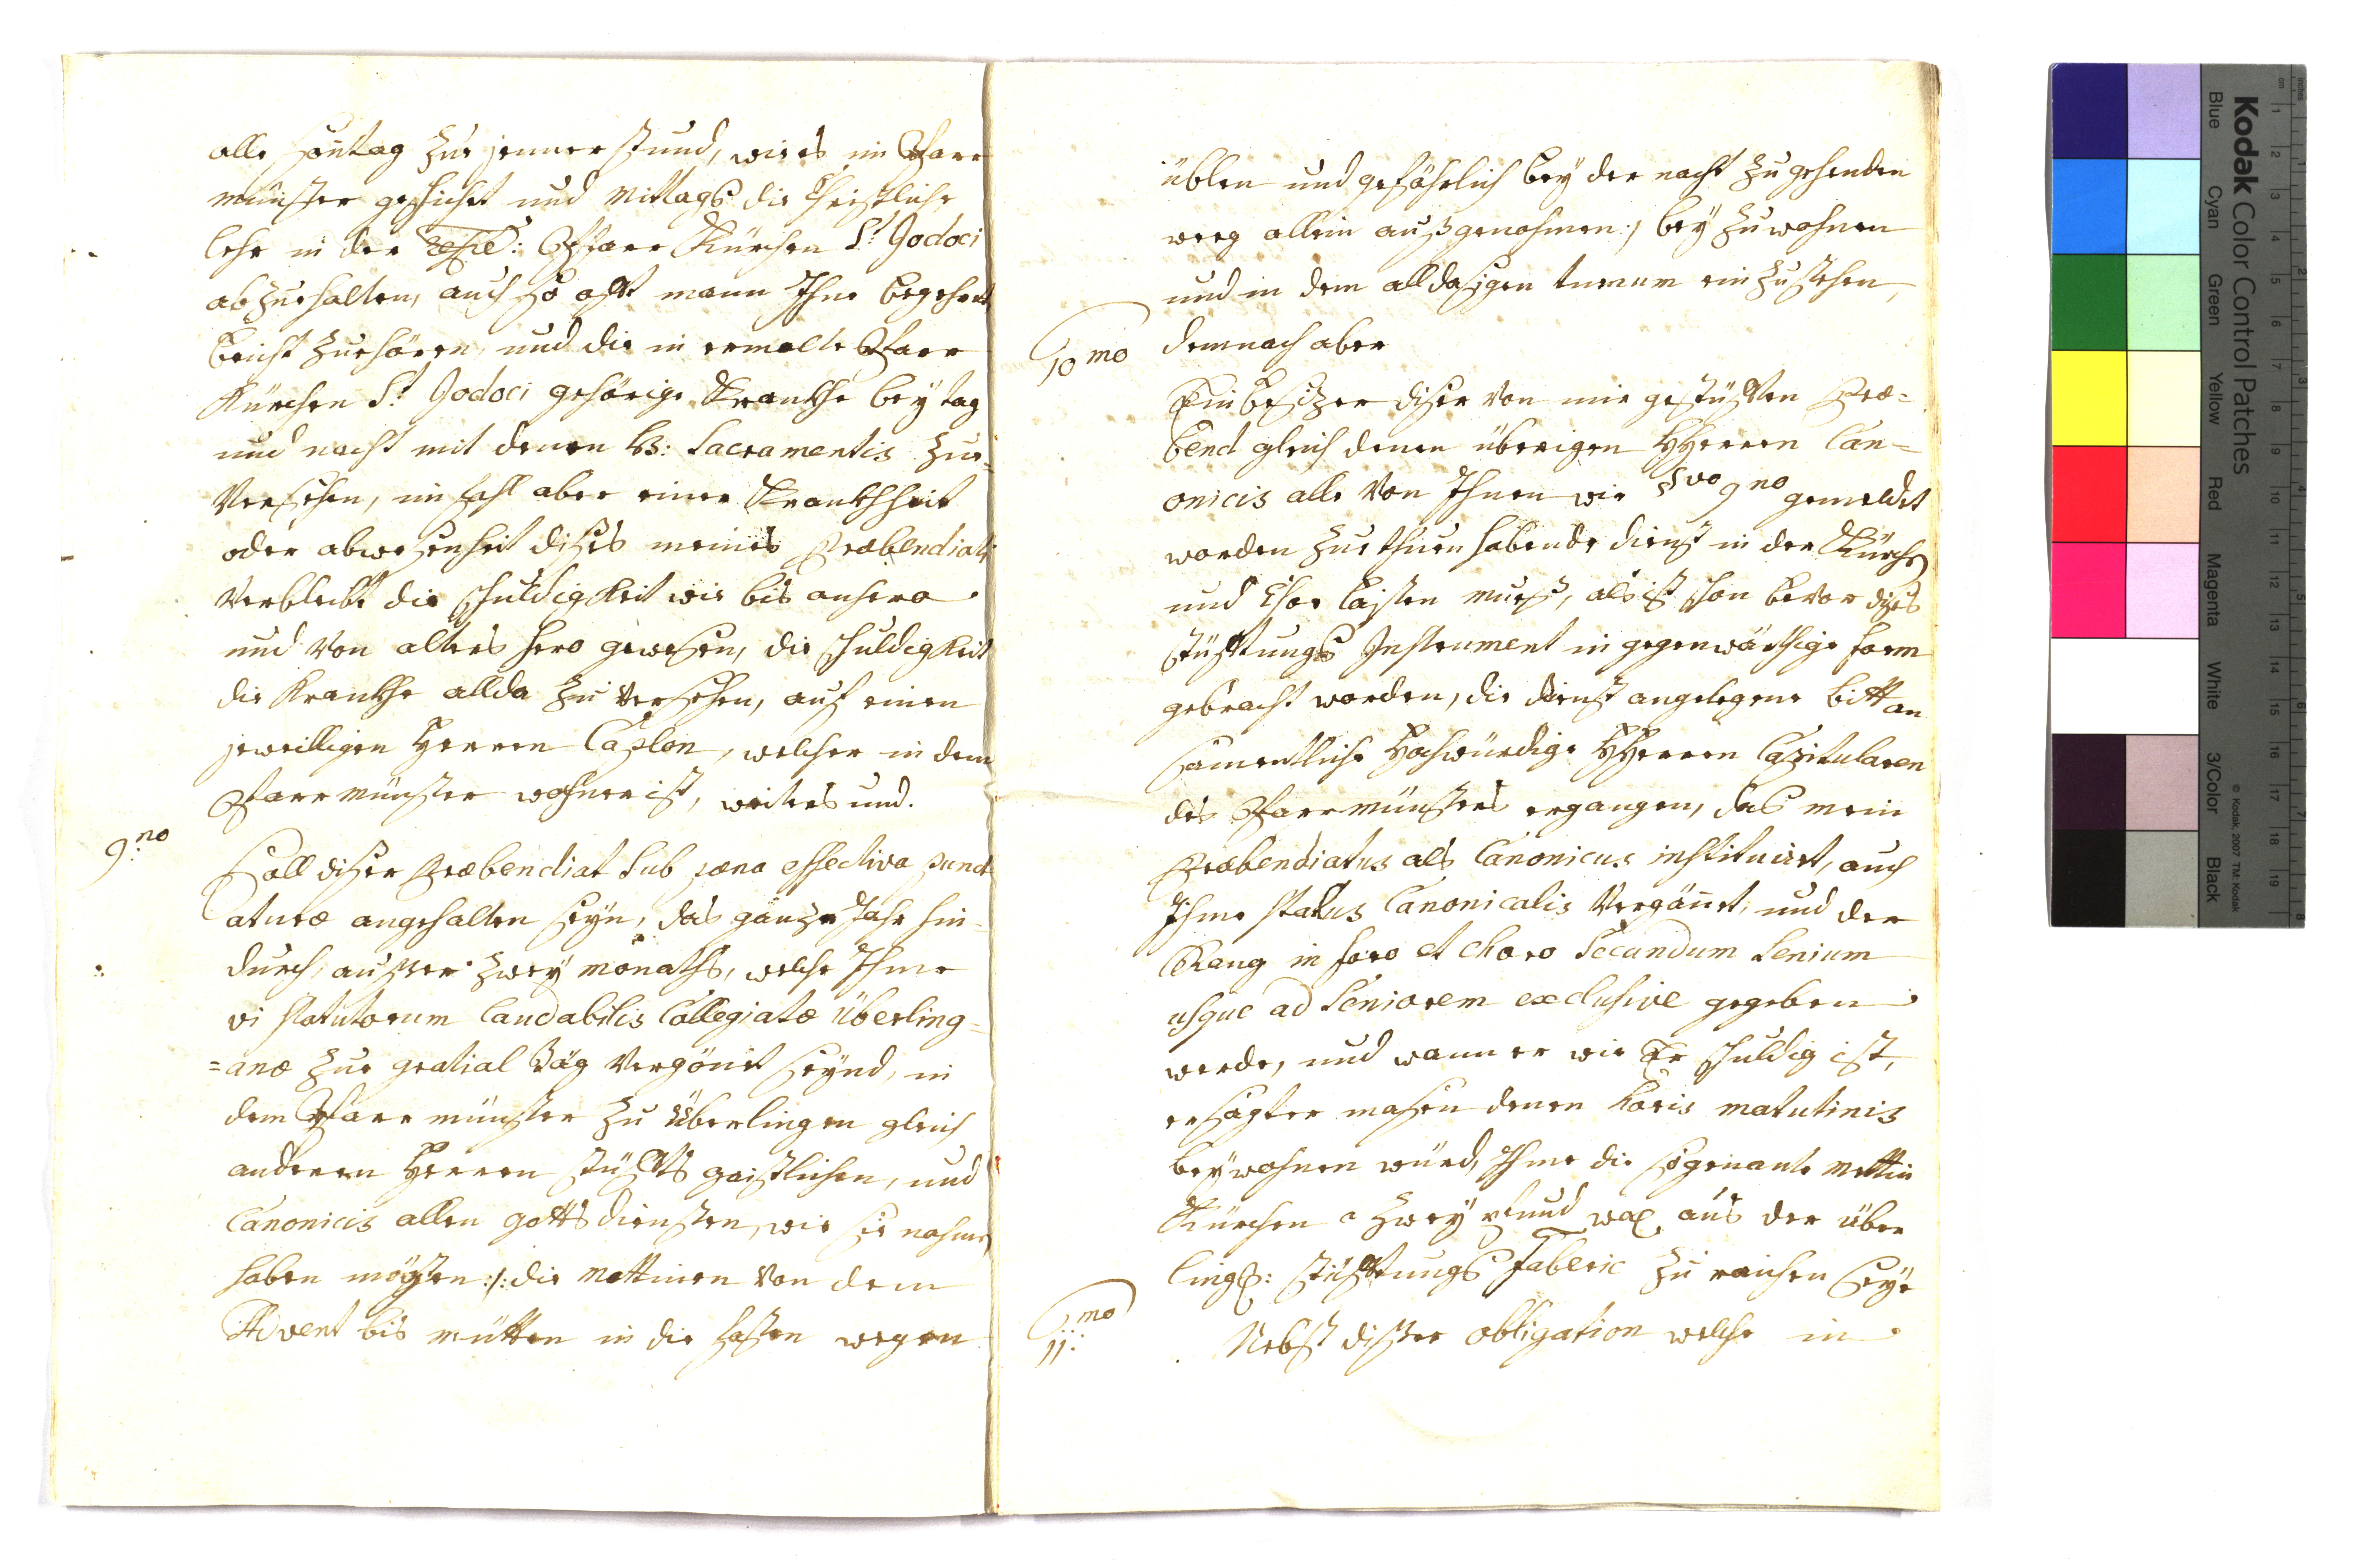 alle Sontag zue jenner stund, wie es im Pfarr
münster geschicht und Mittags die Christliche
lehr in der Pfarr Kürchen St. Jodoci
abzuehalten, auch so offt mann Ihne begehret,
beicht zuehören, und die in ermelte Pfarr
Kürchen St. Jodoci gehörige Krankhe bey tag
und nacht mit denen SS: Sacramentis zue-
Versehen, im fahl aber einer Krankhheit
oder abwesenheit dises meines Præbendiati
Verbleibt die schuldigkeit wie bis anhero
und Von alters hero gewesen, die schuldigkeit
die Krankhe allda zu Versehen, auf einen
jeweilligen Herren Caplon, welcher in dem
Pfarrmünster wohner ist, weiters und.
9.no
Soll diser Præbendiat sub pæna effectiva punct
aturæ angehalten seyn, das ganze Jahr hin-
durch, ausser zwey monaths, welche Ihme
vi statutorum laudabilis Collegiatæ Überling=
=anæ zue gratial täg Vergönet seynd, in
dem Pfarrmünster zu Überlingen gleich
anderen Herren stüffts geistlichen, und
Canonicis allen gottsdiensten, wie sie nahmen
haben mögten :/: die Mettinen Von dem
Advent bis mütten in die fasten wegen
üblen und gefährlich bey der nacht zu gehenden
weeg allein aussgenohmen :/ bey zu wohnen
und in dem alldasigen turnum ein zustehen,
demnach aber
10mo
Ein besizer diser Von mir gestüfften Præ=
bend gleich denen überigen HHerren Can=
onicis alle Von Ihnen wie 8vo 9no gemeldet
worden zue thuen habende dienst in der Kürchen
und Chor laisten muess, als ist schon bevor dises
stüfftungs Instrument in gegenwärthige form
gebracht worden, die dienst angelegene bitt an
samentliche Hochwürdige HHerren Capitularen
des Pfarrmünsters ergangen, das mein
Præbendiatus als Canonicus instituiert, auch
Ihme status Canonicalis Vergönnet, und der
Rang in foro et choro secundum senium
usque ad seniorem exclusive gegeben
werde, und wann er wie Er schuldig ist,
ersagter masen denen horis matutinis
beywohnen würd, Ihme die sogenante Mettin
Kürchen a zwey pfund wax aus der über
ling: stüfftungs fabric zu raichen seye
11.mo
Nebst diser obligation welche in